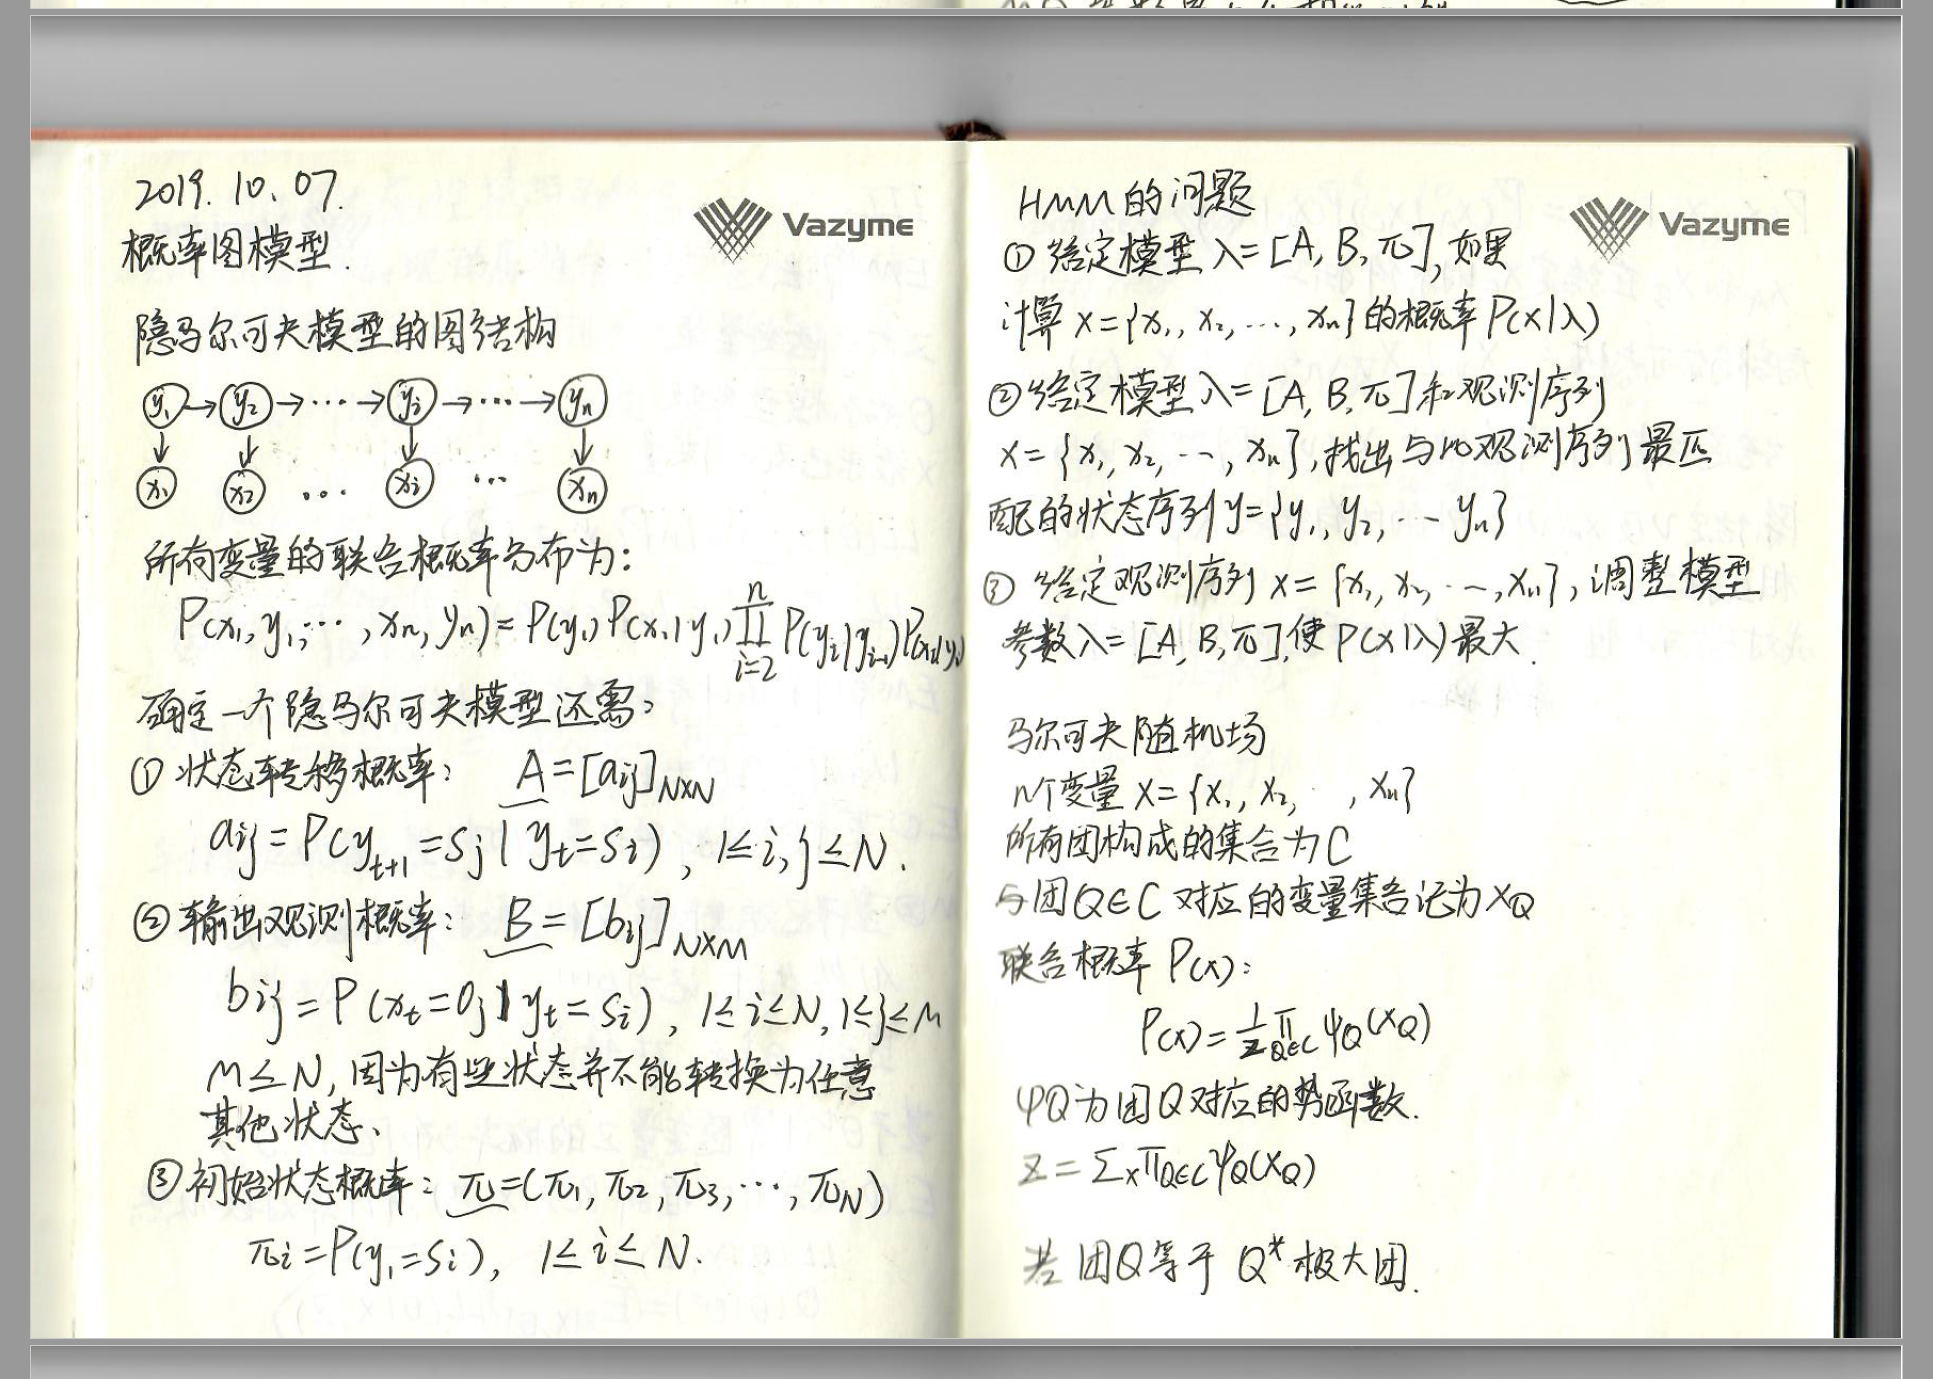 2019.10.07.
Vazyme
概率图模型.
隐马尔可夫模型的图结构
y₁ → y₂ → ··· → yᵢ → ··· → yₙ
↓ ↓ ↓ ↓
x₁ x₂ ··· xᵢ ··· xₙ
所有变量的联合概率分布为:
P(x₁, y₁, ···, xₙ, yₙ) = P(y₁)P(x₁|y₁)∏ᵢ₌₂ⁿ P(yᵢ|yᵢ₋₁)P(xᵢ|yᵢ)
确定一个隐马尔可夫模型还需:
① 状态转移概率: A = [aij]N×N
aij = P(yt+1 = sj | yt = si), 1≤i,j≤N.
② 输出观测概率: B = [bij]N×M
bij = P(xt = oj | yt = si), 1≤i≤N, 1≤j≤M
M≤N, 因为有些状态并不能转换为任意
其他状态、
③ 初始状态概率: π = (π₁, π₂, π₃, ···, πN)
πi = P(y₁ = si), 1≤i≤N.
HMM的问题
Vazyme
① 给定模型 λ = [A, B, π], 如果
计算 x = {x₁, x₂, ···, xₙ} 的概率 P(x|λ)
② 给定模型 λ = [A, B, π] 和观测序列
x = {x₁, x₂, ···, xₙ}, 找出与此观测序列最匹
配的状态序列 y = {y₁, y₂, ··· yₙ}
③ 给定观测序列 x = {x₁, x₂, ···, xₙ}, 调整模型
参数 λ = [A, B, π], 使 P(x|λ) 最大.
马尔可夫随机场
n个变量 x = {x₁, x₂, ··, xₙ}
所有团构成的集合为C
与团Q∈C 对应的变量集合记为 xQ
联合概率 P(x):
P(x) = 1/Z ∏Q∈C ψQ(xQ)
ψQ为团Q对应的势函数.
Z = ∑x∏Q∈CψQ(xQ)
若团Q等于 Q* 极大团.